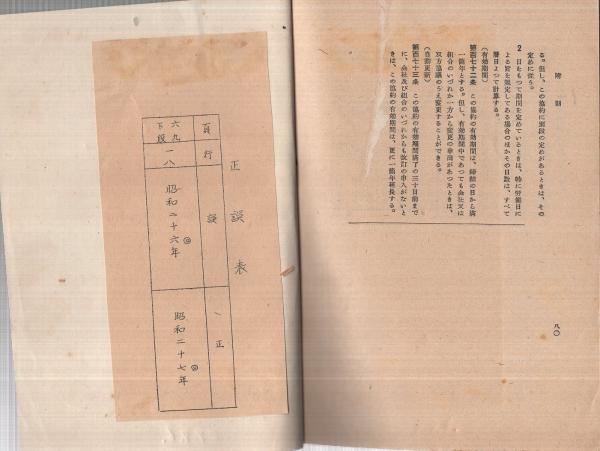 附則
る。但し、この協約に別段の定めがあるときは、その
定めに従う。
2 日をもつて期間を定めているときは、特に労働日に
よる旨を限定してある場合のほかその日数は、すべて
暦日よつて計算する。
(有効期間)
第百七十二条 この協約の有効期間は、締結の日から満
一箇年とする。但し、有効期間中であつても会社又は
組合のいづれか一方から変更の申出があつたときは、
双方協議のうえ変更することができる。
(自動更新)
第百七十三条 この協約の有効期間満了の三十日前まで
に、会社及び組合のいづれからも改訂の申入がないと
きは、この協約の有効期間は、更に一箇年延長する。
八〇
正誤表
頁 行 誤 正
六九下段 一八 昭和二十六年 昭和二十七年